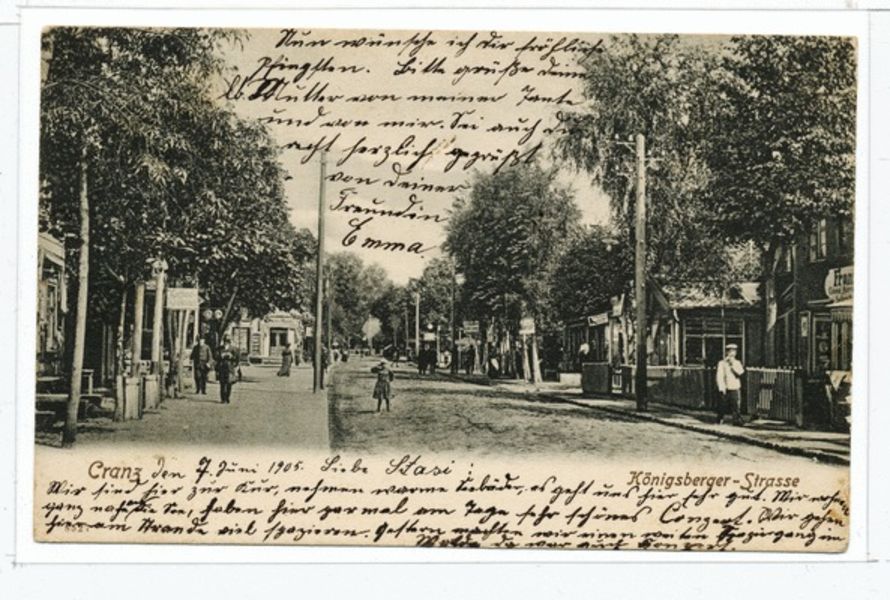 Nun wünsche ich Dir fröhliche
Pfingsten. Bitte grüße deine
lb. Mutter von meiner Tante
und von mir. Sei auch du
recht herzlich gegrüßt
von deiner
Freundin
Emma
Cranz den 7. Juni 1905. Liebe Stasi!
Königsberger-Strasse
Wir sind hier zur Kur, nehmen warme Seebäder, es geht uns hier sehr gut. Wir wohnen
ganz nah See, haben hier par mal am Tage sehr schönes Conzert. Wir gehen
hier am Strande viel spazieren. Gestern machten wir einen weiten Spaziergang im
Walde da war auch Konzert.